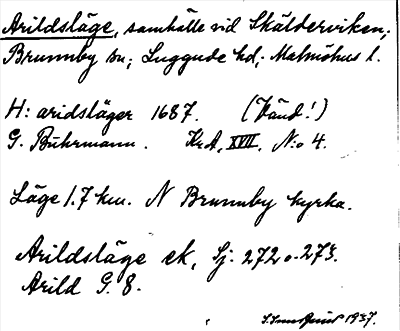 Arildsläge, samhälle vid Skälderviken;
Brunnby sn; Luggude hd; Malmöhus l.
H: aridsläger 1687. (Vänd!)
G. Buhrmann. KrA, XVII, N:o 4.
Läge 1.7 km. N Brunnby kyrka.
Arildsläge ek, Sj. 272 o. 273.
Arild G. 8.
1937.